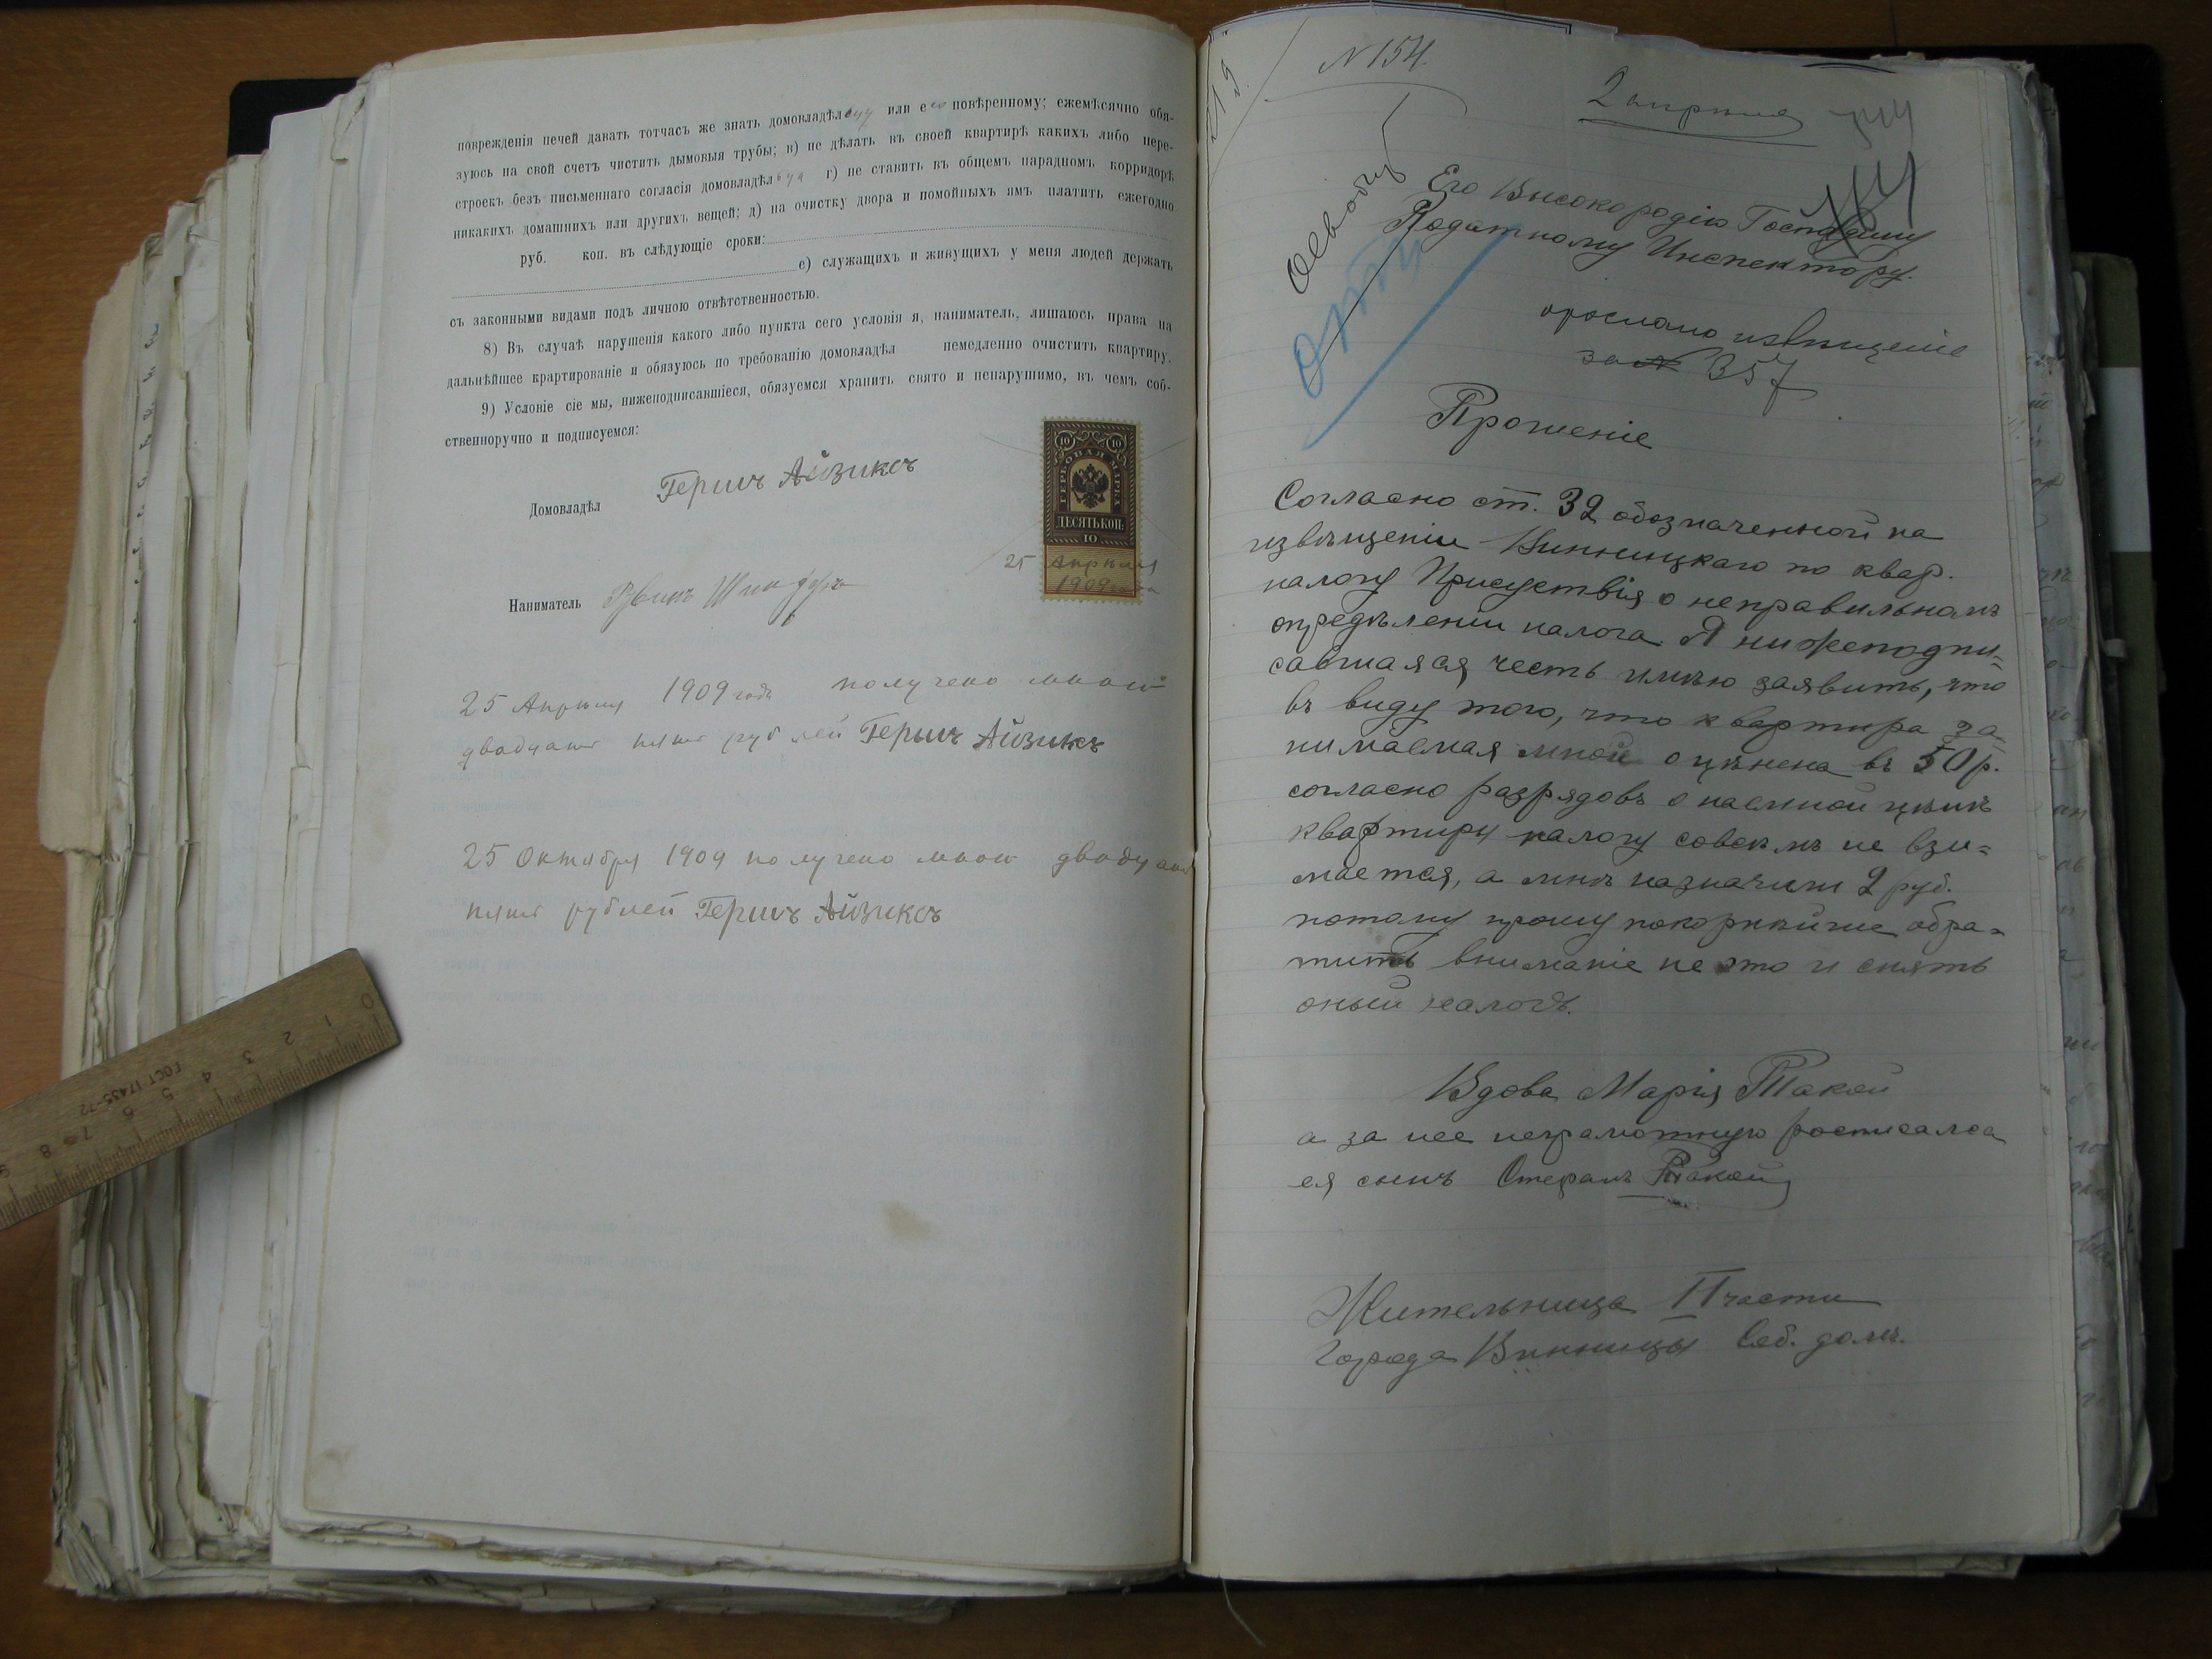 повреждения печей давать тотчасъ же знать домовладѣльцу или его повѣренному; ежемѣсячно обя-
зуюсь на свой счетъ чистить дымовыя трубы; в) не дѣлать въ своей квартирѣ какихъ либо пере-
строекъ безъ письменнаго согласія домовладѣльца г) не ставить въ общемъ парадномъ корридорѣ
никакихъ домашнихъ или другихъ вещей; д) на очистку двора и помойныхъ ямъ платить ежегодно
руб. коп. въ слѣдующіе сроки:
е) служащихъ и живущихъ у меня людей держать
съ законными видами подъ личною отвѣтственностью.
8) Въ случаѣ нарушенія какого либо пункта сего условія я, наниматель, лишаюсь права на
дальнѣйшее крартированіе и обязуюсь по требованію домовладѣл немедленно очистить квартиру.
9) Условіе сіе мы, нижеподписавшіеся, обязуемся хранить свято и ненарушимо, въ чемъ соб-
ственноручно и подписуемся:
Домовладѣл Гершъ Айзиксъ
ГЕРБОВАЯ МАРКА
10 10
ДЕСЯТЬ КОП.
10
25 Апрѣля
1909 года
Наниматель
25 Апрѣля 1909 года получено мною
двадцать пять рублей Гершъ Айзиксъ
25 Октября 1909 получено мною двадцать
пять рублей Гершъ Айзиксъ
N 154.
2 апрѣля
Его Высокородію Господину
Податному Инспектору.
прослано извѣщеніе
за N 357
Прошеніе
Согласно ст. 32 обозначенной на
извѣщеніи Винницкаго по квар.
налогу Присуствія о неправильномъ
опредѣленіи налога. Я нижеподпи=
савшаяся честь имѣю заявить, что
въ виду того, что квартира за=
нимаемая мной оцѣнена въ 50 р.
согласно разрядовъ о наемной цѣнѣ
квартиры налогу совсѣмъ не взи=
мается, а мнѣ назначили 2 руб.
потому прошу покорнѣйше обра=
тить вниманіе на это и снять
оный налогъ.
Вдова Марія Такой
а за нее неграмотную росписался
ея сынъ Стефанъ Такой
Жительница II части
Города Винницы Соб. домъ.